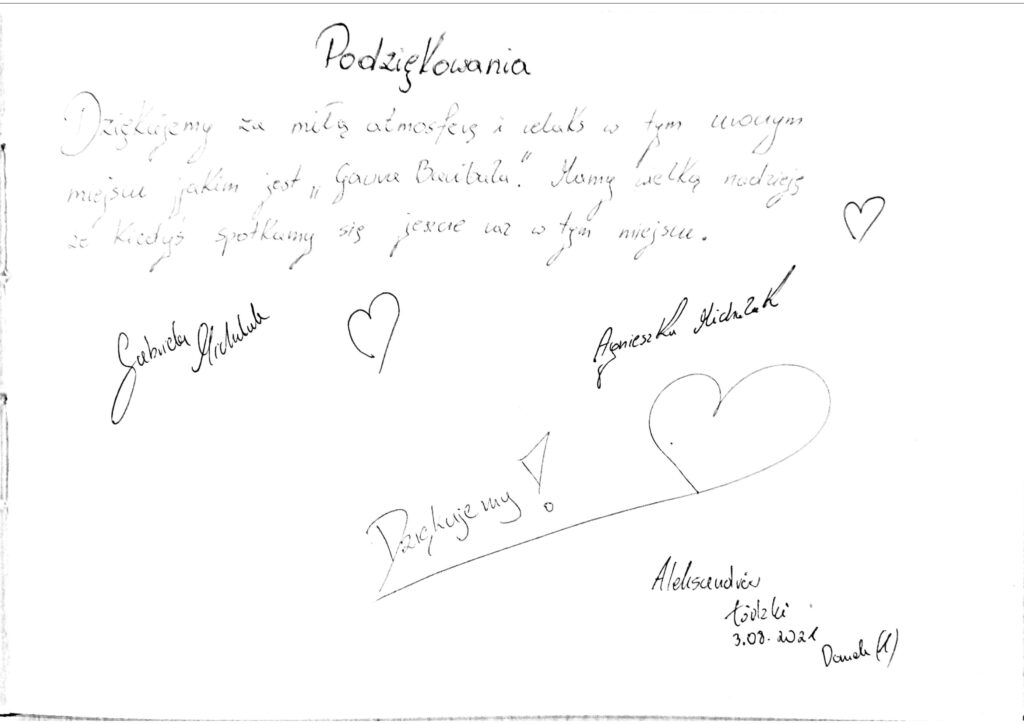 Podziękowania
Dziękujemy za miłą atmosferę i relaks w tym uroczym
miejscu jakim jest „Gawra Baribala”. Mamy wielką nadzieję
że kiedyś spotkamy się jeszcze raz w tym miejscu.
Gabriela Michalak
Agnieszka Michalak
Dziękujemy!
Aleksandrów
Łódzki
3.08.2021
Domek (1)